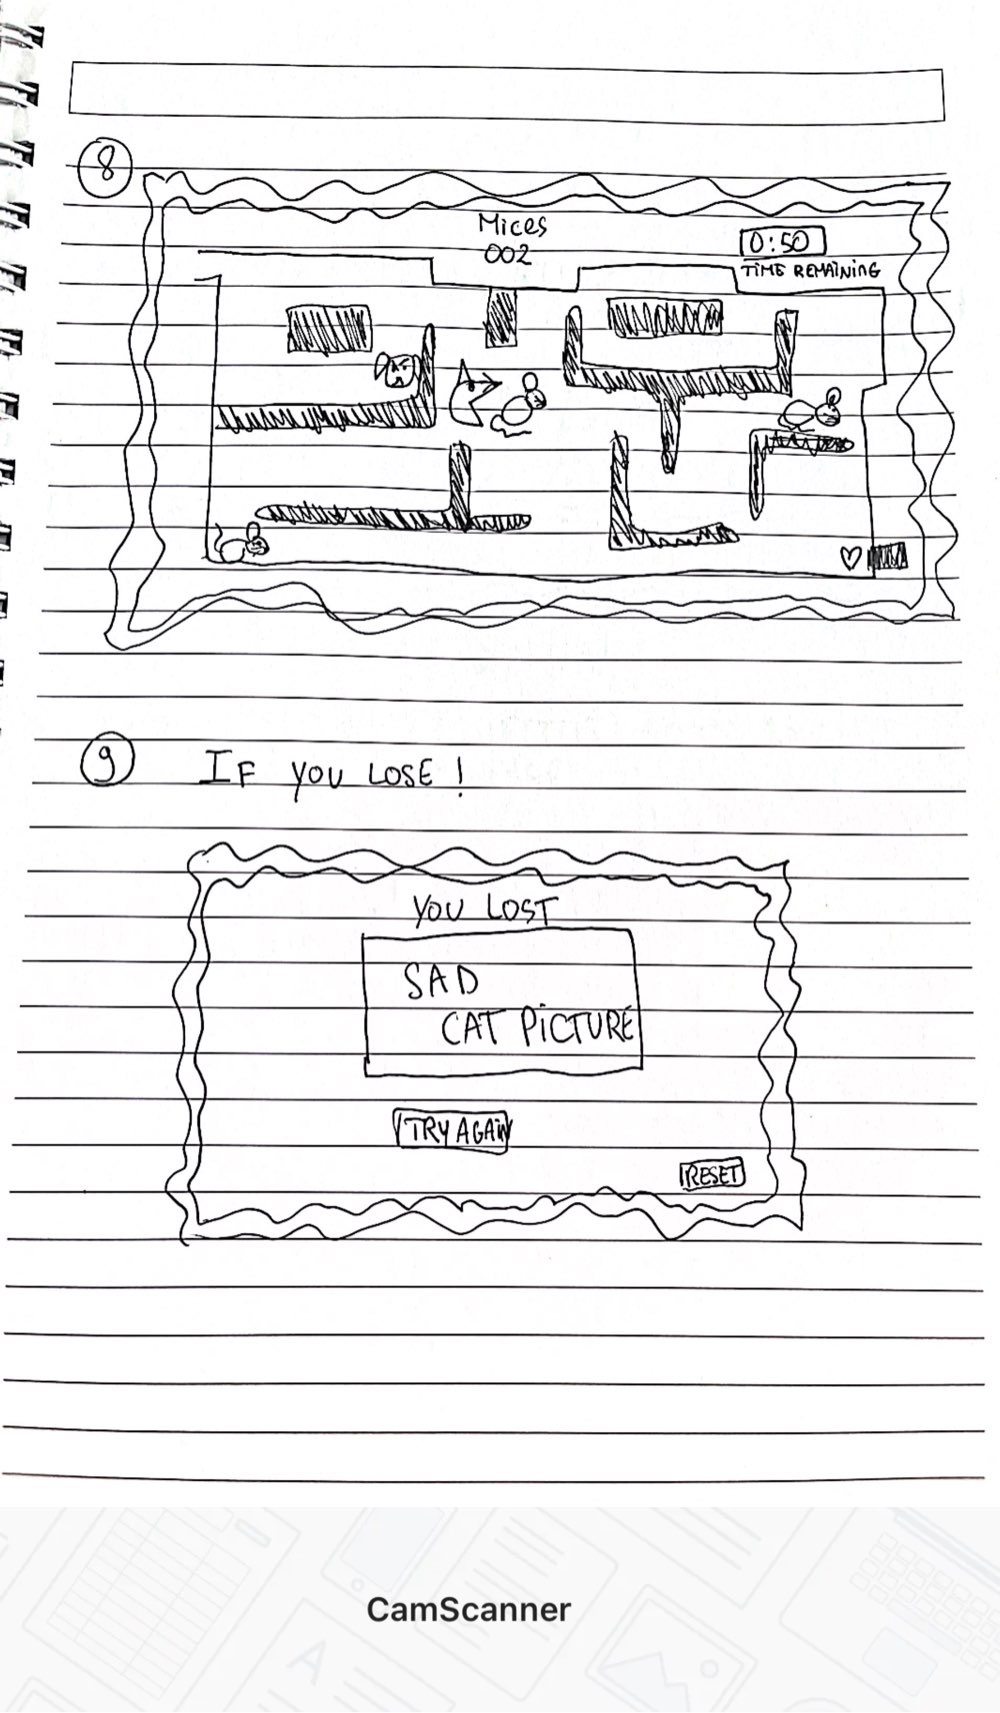 8
Mices
002
0:50
TIME REMAINING
9 IF YOU LOSE!
YOU LOST
SAD
CAT PICTURE
TRY AGAIN
RESET
CamScanner